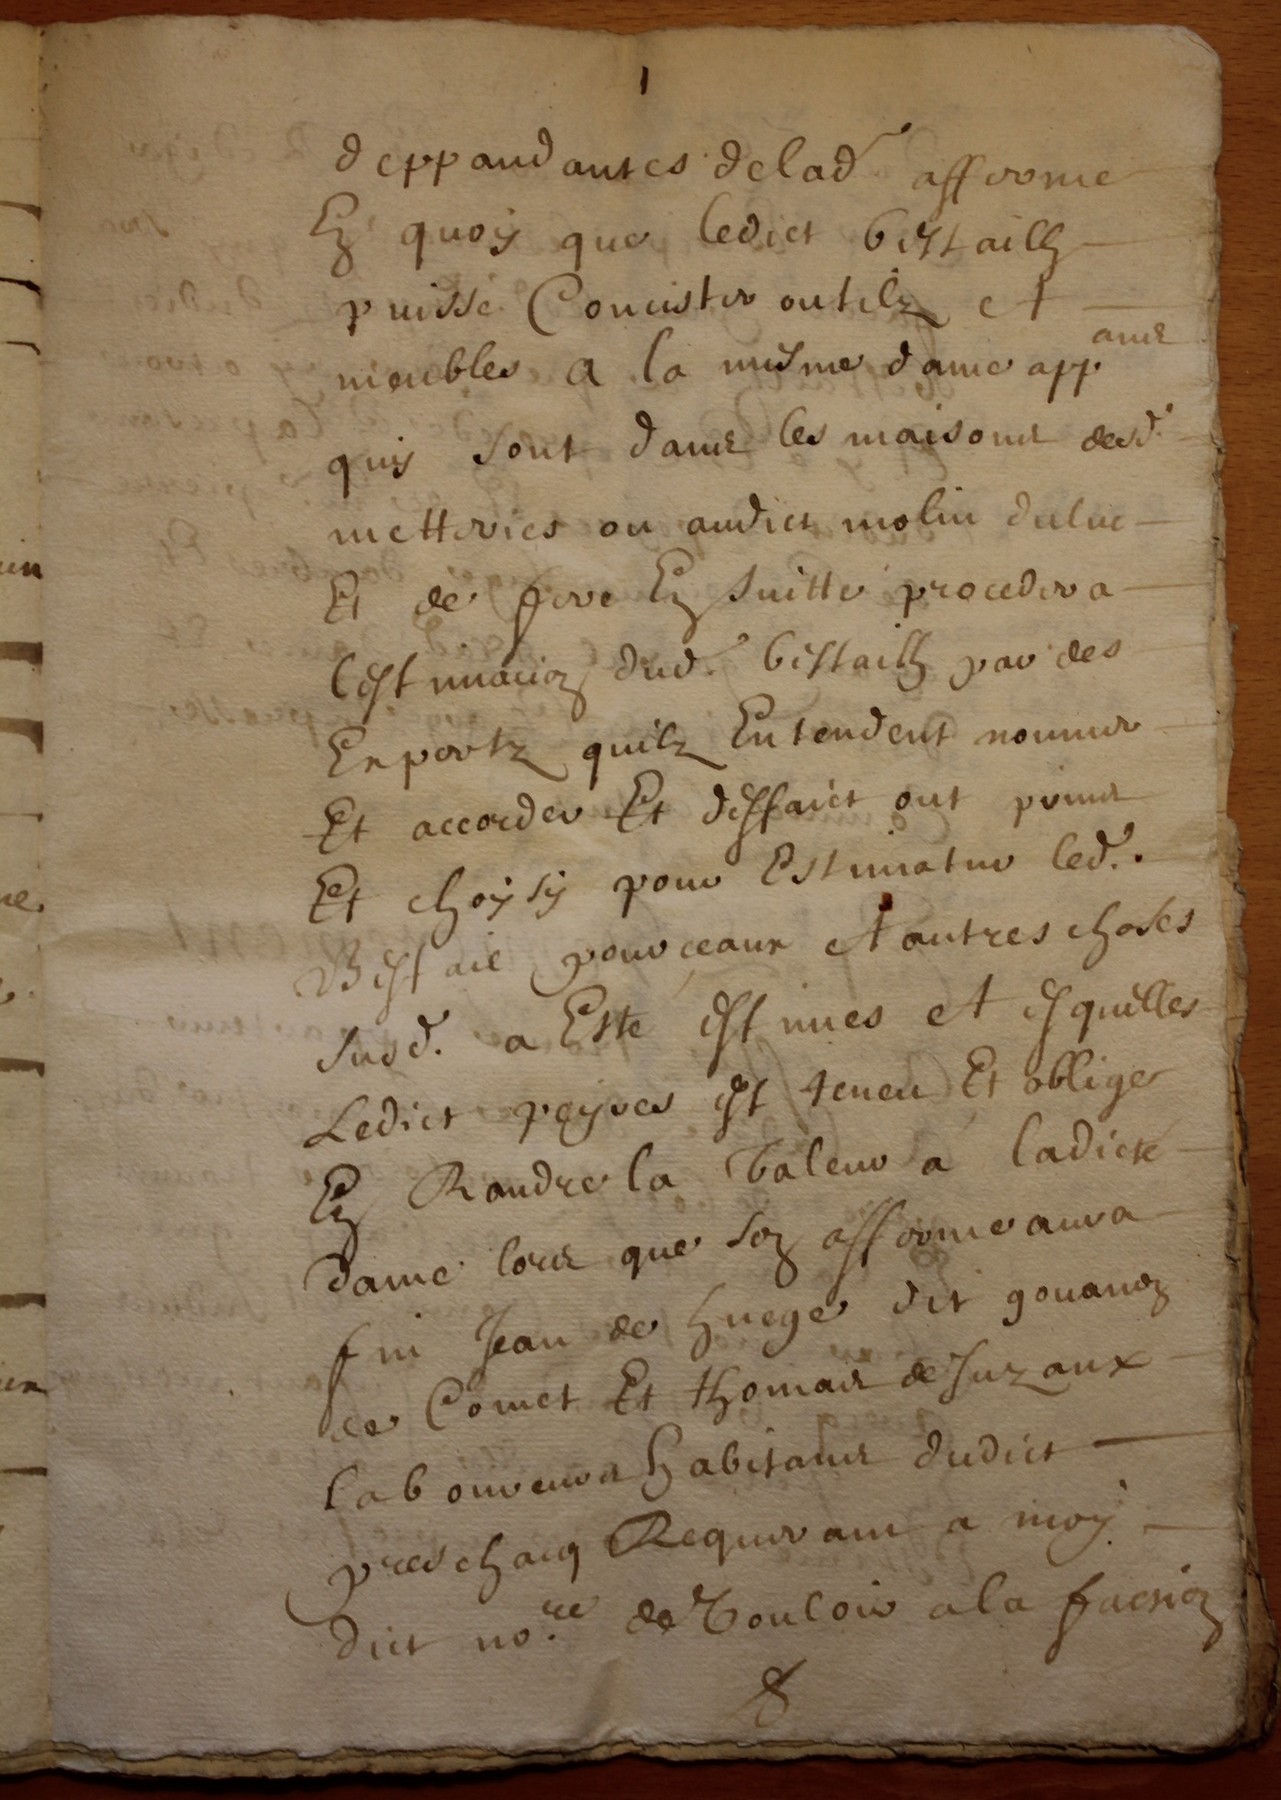 1
deppandantes de lad afferme
En quoy que ledict bestailh
puisse Concister outilz et
meubles a la mesme dame appans
quy sont dans les maisons desd.
metteries ou audict molin duluc
Et de fere En suitte proceder a
lestimacion dud. bestailh par des
Expertz quilz Entendent nommer
Et accorder Et deffaict ont prins
Et choysy pour Estimatur led.
Bestail pourceaux et autres choses
susd. a Este estimes et esquelles
Ledict peyres est teneu Et oblige
En Randre la Valeur a ladicte
dame lors que son afferme aura
fin Jean de huege dit gouanon
de Comet Et thomas de Juzaux
laboureurs habitans dudict
preschacq Requerant a moy
dict no.re de Vouloir a la faction